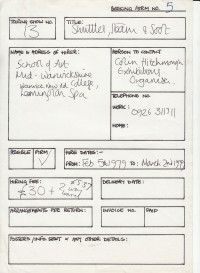 BOOKING FORM NO. 5
TOURING SHOW NO.
13
TITLE:
Shuttles, Steam & Soot
NAME & ADDRESS OF HIRER:
School of Art
Mid-Warwickshire
College,
Leamington Spa
PERSON TO CONTACT
Colin Hitchmough
Exhibitions
Organiser.
TELEPHONE NO.
WORK: 0926 311711
HOME:
FIRM
✓
HIRE DATES:-
FROM: Feb 5th 1979 TO: March 2nd 1979
HIRING FEE:
£30 + 2 way
DELIVERY DATE:
ARRANGEMENTS FOR RETURN:
INVOICE NO.
PAID
POSTERS/INFO SENT & ANY OTHER DETAILS: